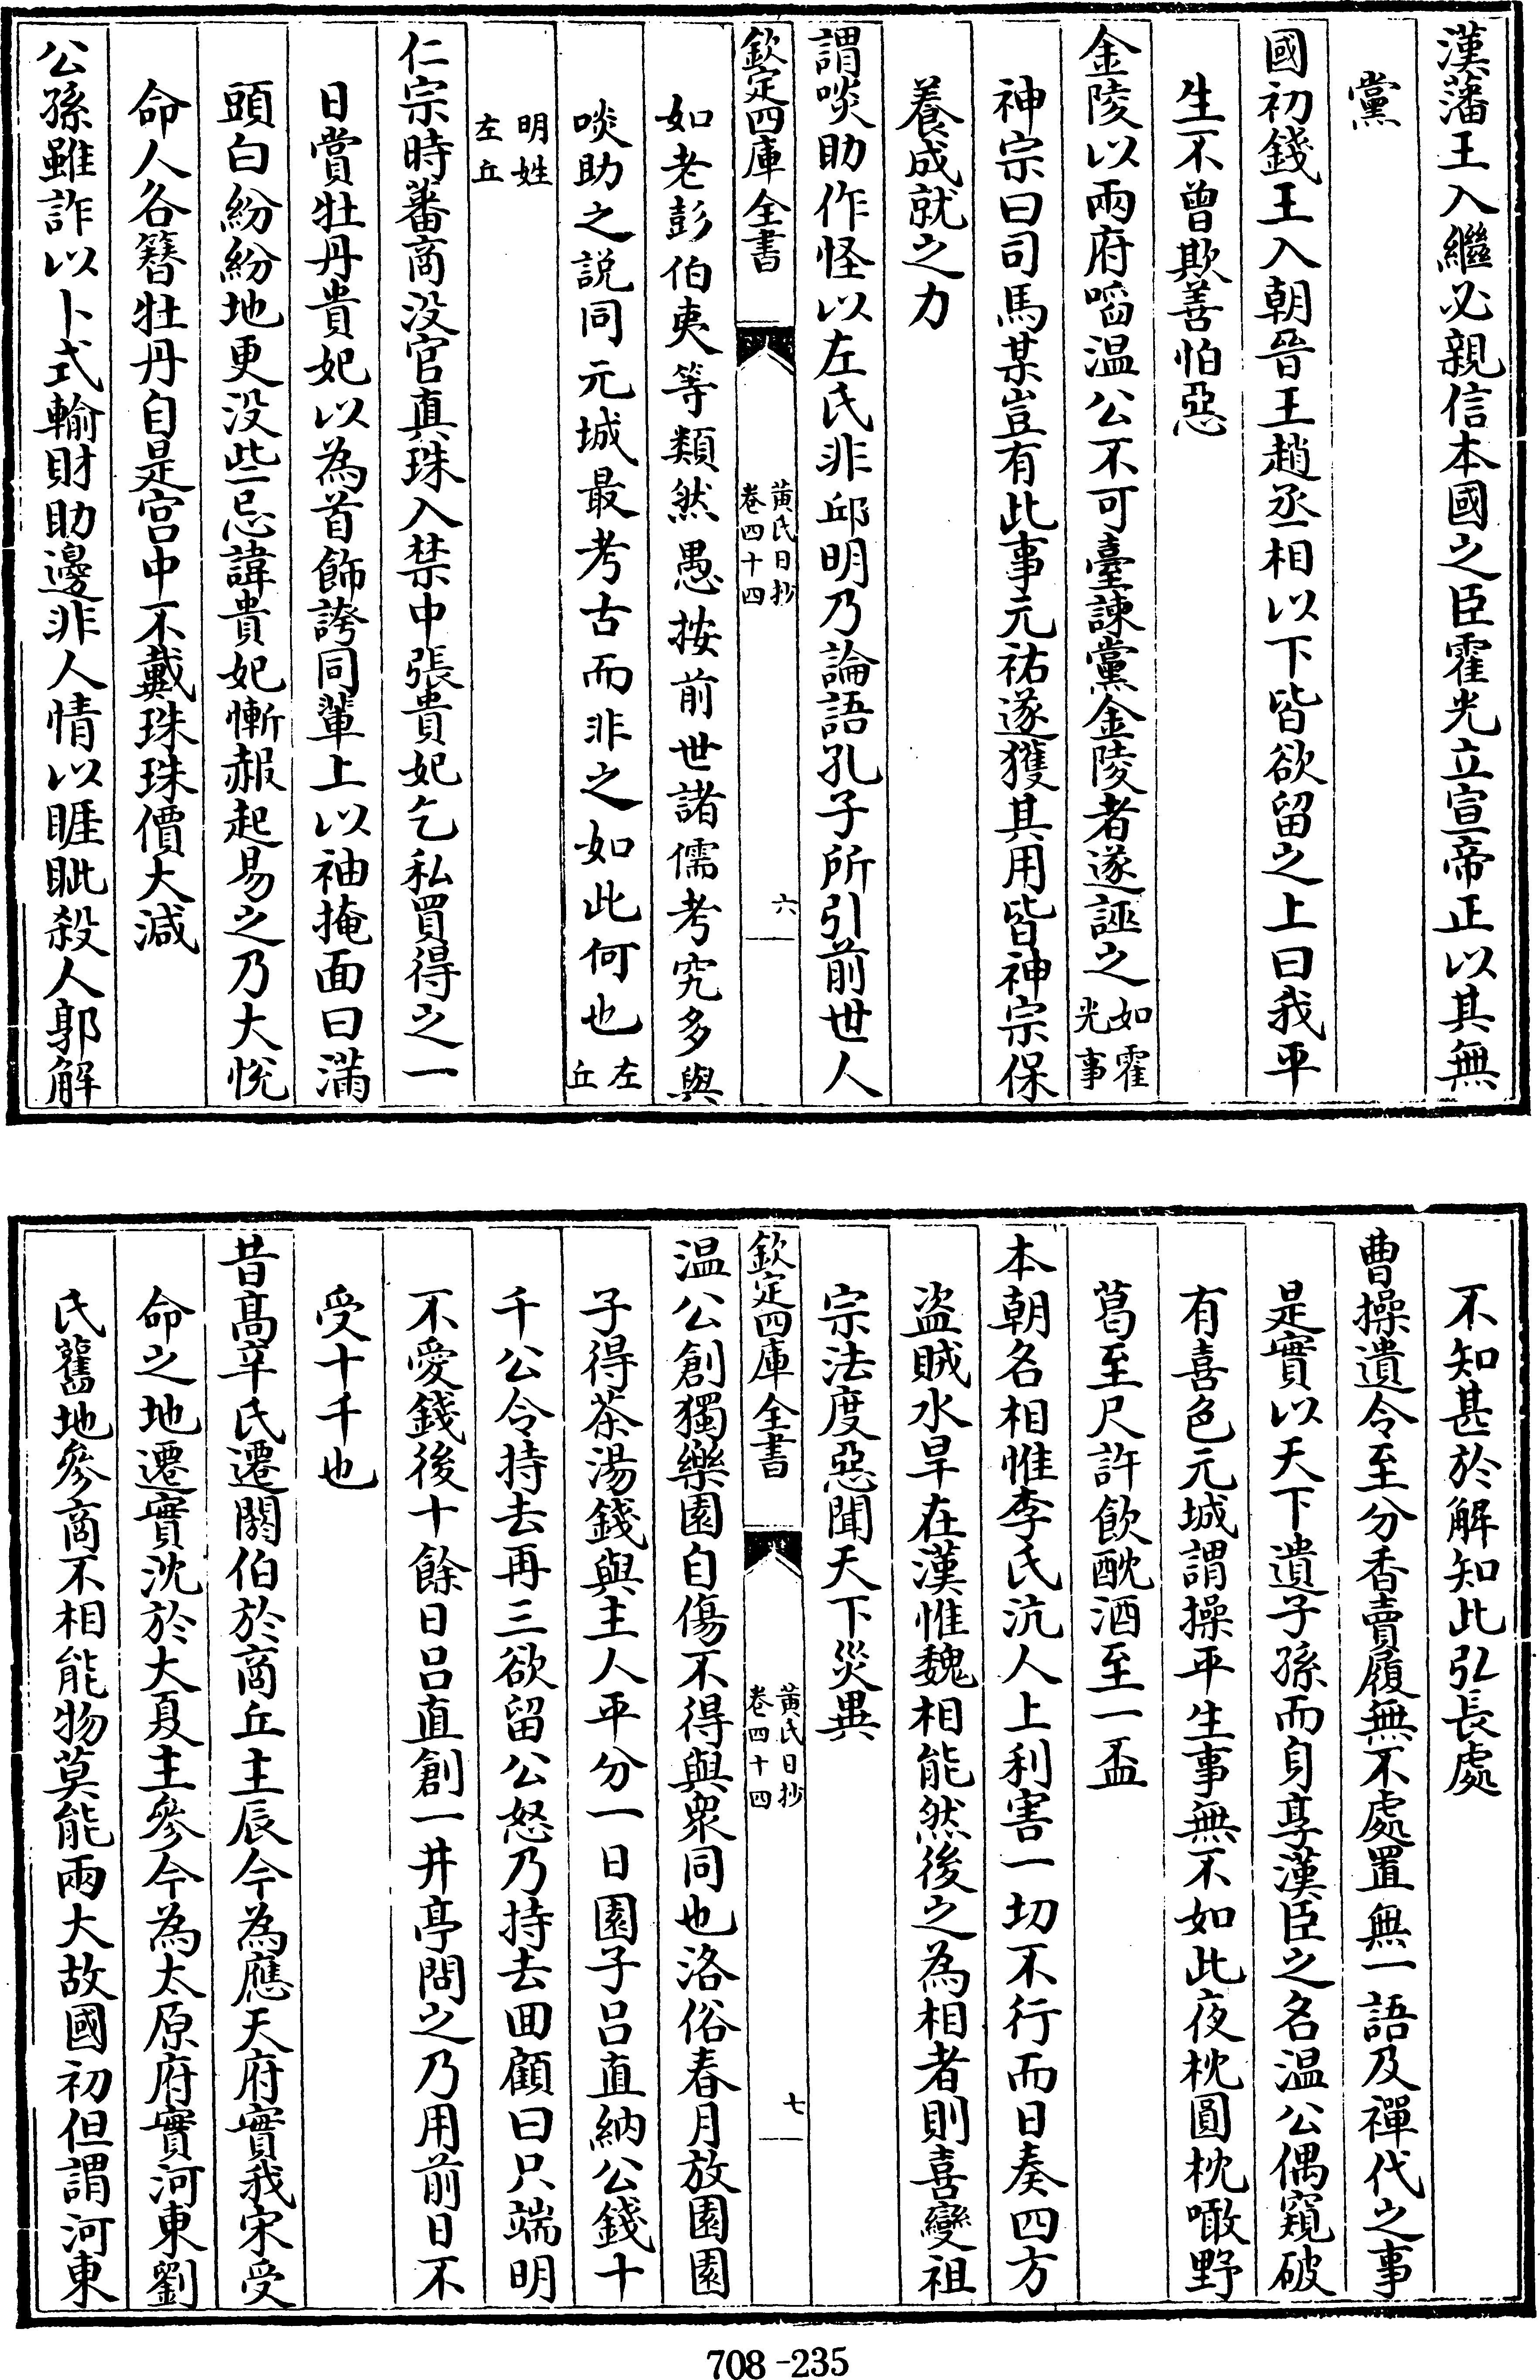 漢藩王入繼必親信本國之臣霍光立宣帝正以其無
黨
國初錢王入朝晉王趙丞相以下皆欲留之上曰我平
生不曾欺善怕惡
金陵以兩府㗖温公不可臺諫黨金陵者遂誣之如霍光事
神宗曰司馬某豈有此事元祐遂獲其用皆神宗保
養成就之力
謂啖助作怪以左氏非邱明乃論語孔子所引前世人
欽定四庫全書
黄氏日抄
卷四十四
六
如老彭伯夷等類然愚按前世諸儒考究多與
啖助之説同元城最考古而非之如此何也左丘
明姓左丘
仁宗時蕃商没官真珠入禁中張貴妃乞私買得之一
日賞牡丹貴妃以為首飾誇同輩上以袖掩面曰滿
頭白紛紛地更没些忌諱貴妃慚赧起易之乃大悅
命人各簪牡丹自是宫中不戴珠珠價大減
公孫雖詐以卜式輸財助邊非人情以睚眦殺人郭解
不知甚於解知此弘長處
曹操遺令至分香賣履無不處置無一語及禪代之事
是實以天下遺子孫而身享漢臣之名温公偶窺破
有喜色元城謂操平生事無不如此夜枕圓枕噉野
葛至尺許飲酖酒至一盃
本朝名相惟李氏沆人上利害一切不行而日奏四方
盗賊水旱在漢惟魏相能然後之為相者則喜變祖
宗法度惡聞天下災異
欽定四庫全書
黄氏日抄
卷四十四
七
温公創獨樂園自傷不得與衆同也洛俗春月放園園
子得茶湯錢與主人平分一日園子吕直納公錢十
千公令持去再三欲留公怒乃持去囬顧曰只端明
不愛錢後十餘日吕直創一井亭問之乃用前日不
受十千也
昔髙辛氏遷閼伯於商丘主辰今為應天府實我宋受
命之地遷實沈於大夏主參今為太原府實河東劉
氏舊地參商不相能物莫能兩大故國初但謂河東
708-235